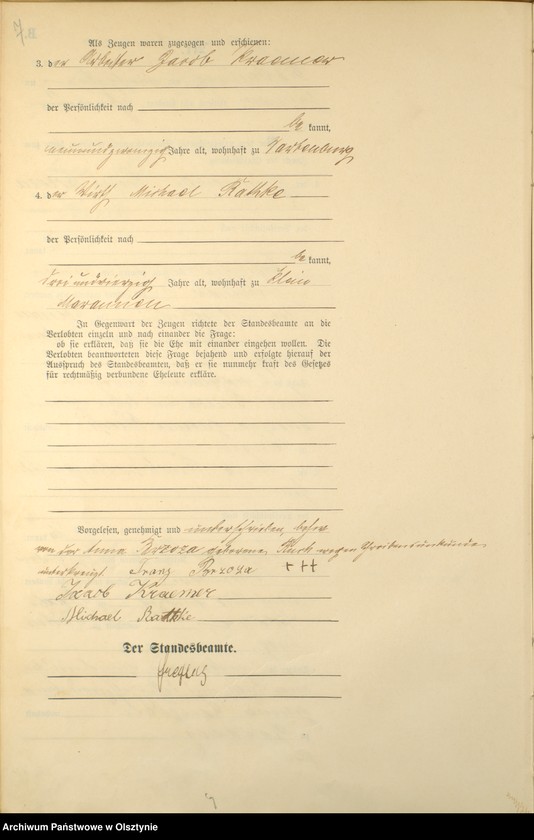 Als Zeugen waren zugezogen und erschienen:
3. der Arbeiter Jacob Kraemer
der Persönlichkeit nach
be kannt,
neunundzwanzig Jahre alt, wohnhaft zu Wartenburg
4. der Wirt Michael Rathke
der Persönlichkeit nach
be kannt,
dreiundvierzig Jahre alt, wohnhaft zu Klein
Maraunen
In Gegenwart der Zeugen richtete der Standesbeamte an die
Verlobten einzeln und nach einander die Frage:
ob sie erklären, daß sie die Ehe mit einander eingehen wollen. Die
Verlobten beantworteten diese Frage bejahend und erfolgte hierauf der
Ausspruch des Standesbeamten, daß er sie nunmehr kraft des Gesetzes
für rechtmäßig verbundene Eheleute erkläre.
Vorgelesen, genehmigt und unterschrieben,
von der Anna Brzoza geborene wegen Schreibensunkunde
unterkreuzt. Franz Brzoza +++
Jacob Kraemer
Michael Rathke
Der Standesbeamte.
Archiwum Państwowe w Olsztynie